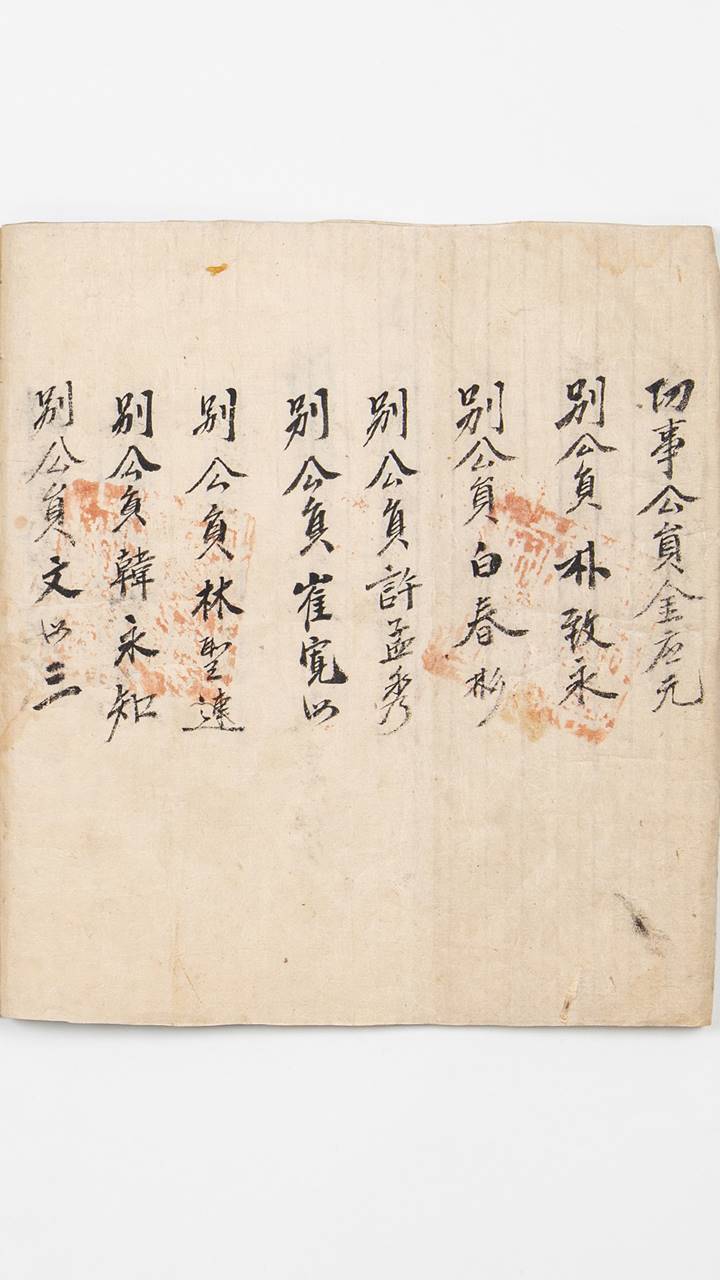 切事公員金応元
別公員朴致永
別公員白春彬
別公員許孟秀
別公員崔寛以
別公員林聖連
別公員韓永知
別公員文以三